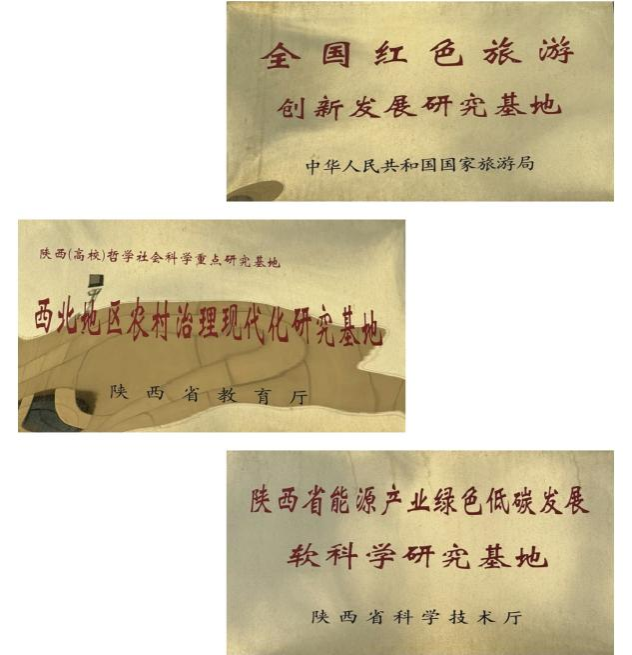 全国红色旅游
创新发展研究基地
中华人民共和国国家旅游局
陕西(高校)哲学社会科学重点研究基地
西北地区农村治理现代化研究基地
陕西省教育厅
陕西省能源产业绿色低碳发展
软科学研究基地
陕西省科学技术厅